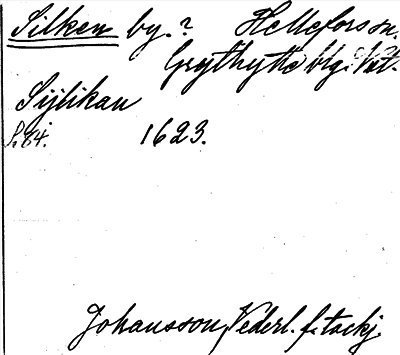 Silken by.? Hellefors sn.
Grythytte blg. Vst.
Sijlikan
S. 84. 1623.
Johansson, Vederl. f. tackj.